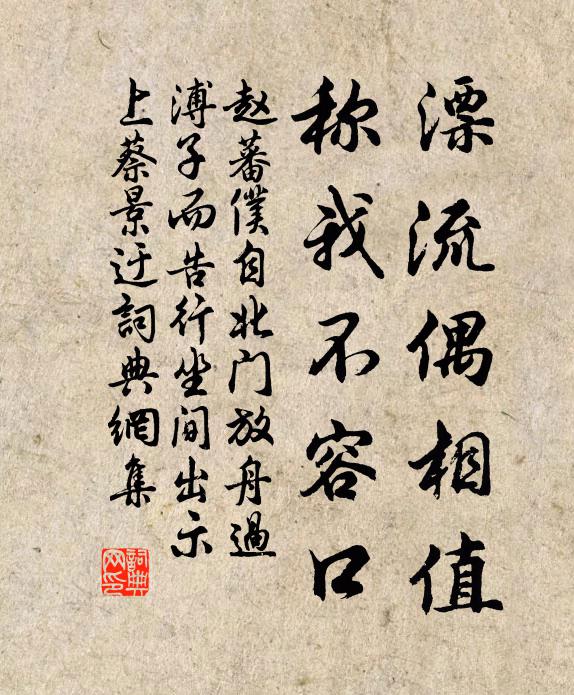 漂流偶相值
称我不容口
赵蕃僕自北门放舟過
溥子而告行坐间出示
上蔡景迂詞典網集
詞典网印